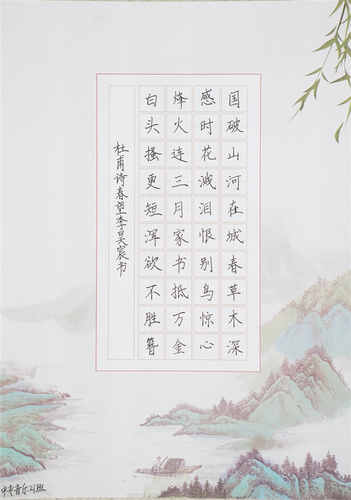 国破山河在城春草木深
感时花溅泪恨别鸟惊心
烽火连三月家书抵万金
白头搔更短浑欲不胜簪
杜甫诗春望李昊宸书
中专音乐21班